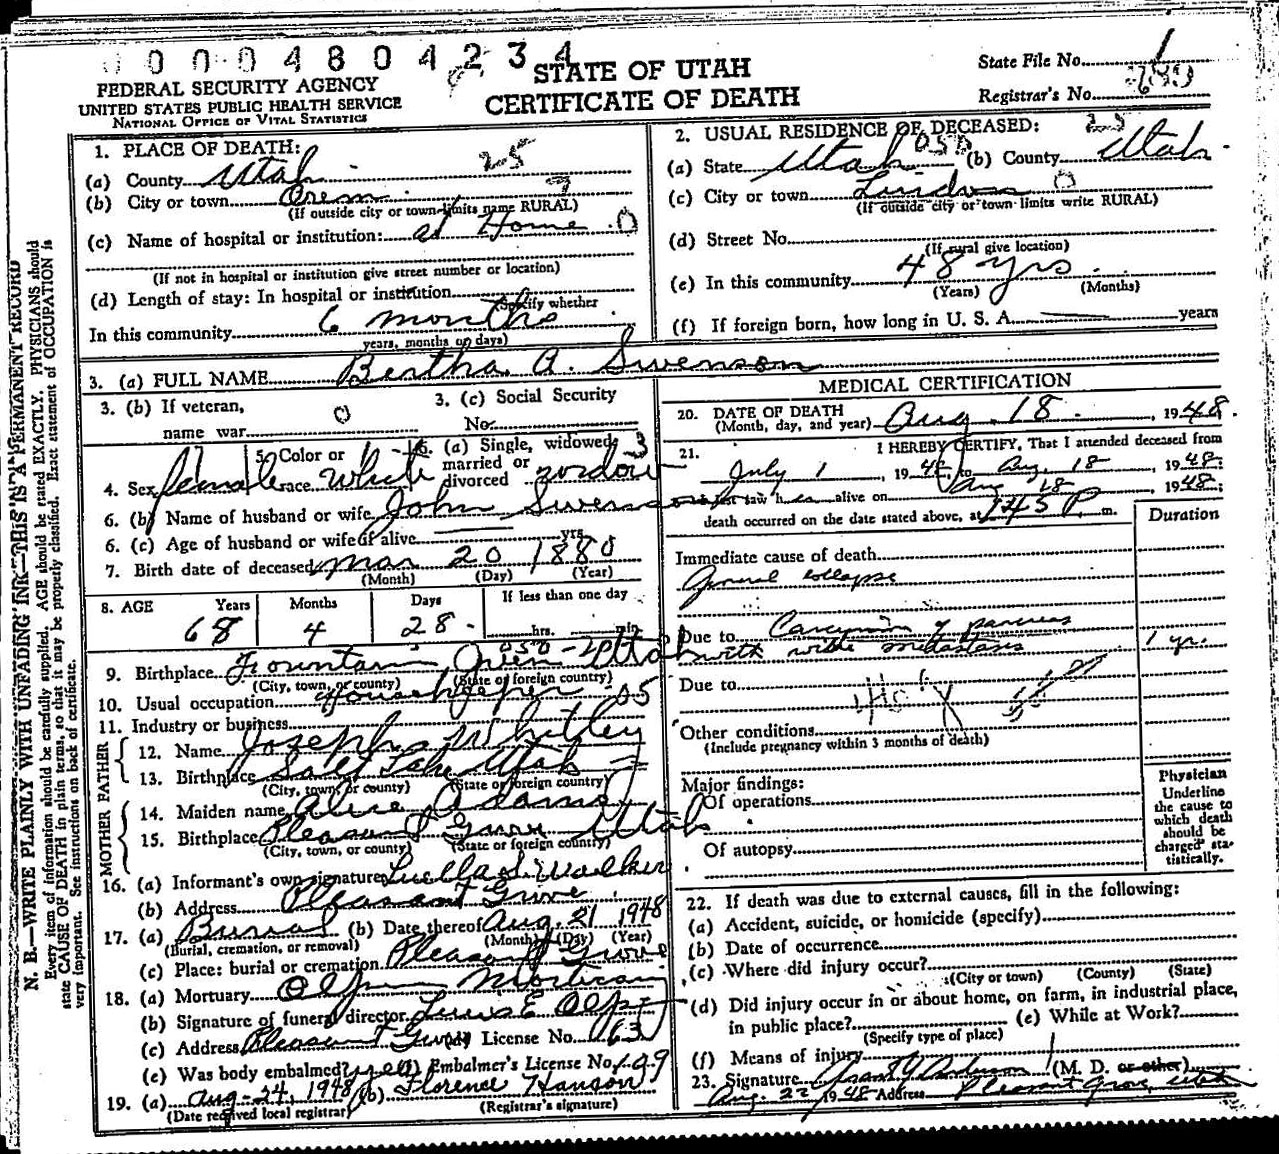 0 0 0 4 8 0 4 2 3 4
FEDERAL SECURITY AGENCY
UNITED STATES PUBLIC HEALTH SERVICE
NATIONAL OFFICE OF VITAL STATISTICS
STATE OF UTAH
CERTIFICATE OF DEATH
State File No. 1
Registrar's No.
N. B.—WRITE PLAINLY WITH UNFADING INK—THIS IS A PERMANENT RECORD
Every item of information should be carefully supplied. AGE should be stated EXACTLY. PHYSICIANS should
state CAUSE OF DEATH in plain terms, so that it may be properly classified. Exact statement of OCCUPATION is
very important. See instructions on back of certificate.
1. PLACE OF DEATH: 25
(a) County Utah
(b) City or town Orem
(If outside city or town limits name RURAL)
(c) Name of hospital or institution: at Home 0
(If not in hospital or institution give street number or location)
(d) Length of stay: In hospital or institution
(Specify whether
In this community 6 months
years, months or days)
2. USUAL RESIDENCE OF DECEASED: 25
(a) State Utah 050 (b) County Utah
(c) City or town Lindon 0
(If outside city or town limits write RURAL)
(d) Street No.
(If rural give location)
(e) In this community 48 yrs.
(Years) (Months)
(f) If foreign born, how long in U. S. A. years
3. (a) FULL NAME Bertha A. Swenson
3. (b) If veteran, name war 0
3. (c) Social Security No.
4. Sex female 5. Color or race White 6. (a) Single, widowed, married or divorced widow 3
6. (b) Name of husband or wife John Swenson
6. (c) Age of husband or wife if alive yrs.
7. Birth date of deceased Mar 20 1880
(Month) (Day) (Year)
8. AGE Years Months Days If less than one day
68 4 28 hrs. min.
9. Birthplace Fountain Green Utah
(City, town, or county) (State of foreign country)
10. Usual occupation Housekeeper
11. Industry or business
FATHER
12. Name Joseph Whitley
13. Birthplace Salt Lake Utah
(City, town, or county) (State or foreign country)
MOTHER
14. Maiden name Alice Adams
15. Birthplace Pleasant Grove Utah
(City, town, or county) (State or foreign country)
16. (a) Informant's own signature Luella S. Walker
(b) Address Pleasant Grove
17. (a) Burial (b) Date thereof Aug. 21 1948
(Burial, cremation, or removal) (Month) (Day) (Year)
(c) Place: burial or cremation Pleasant Grove
18. (a) Mortuary Olpin Mortuary
(b) Signature of funeral director E Olpin
(c) Address Pleasant Grove (d) License No. 63
(e) Was body embalmed? yes (f) Embalmer's License No.
19. (a) Aug-24, 1948 (b) Florence Hanson
(Date received local registrar) (Registrar's signature)
MEDICAL CERTIFICATION
20. DATE OF DEATH Aug. 18, 1948.
(Month, day, and year)
21. I HEREBY CERTIFY, That I attended deceased from
July 1, 1948, to Aug. 18, 1948;
I last saw her alive on Aug 18, 1948;
death occurred on the date stated above, at 145 P. m.
Duration
Immediate cause of death
General collapse
Due to Carcinoma of pancreas
with wide metastasis 1 yr.
Due to
Other conditions
(Include pregnancy within 3 months of death)
Major findings:
Of operations
Of autopsy
Physician
Underline
the cause to
which death
should be
charged sta-
tistically.
22. If death was due to external causes, fill in the following:
(a) Accident, suicide, or homicide (specify)
(b) Date of occurrence
(c) Where did injury occur?
(City or town) (County) (State)
(d) Did injury occur in or about home, on farm, in industrial place,
in public place? (e) While at Work?
(Specify type of place)
(f) Means of injury
23. Signature Grant Y Anderson (M. D. or other)
Aug. 22 1948 Address Pleasant Grove, Utah